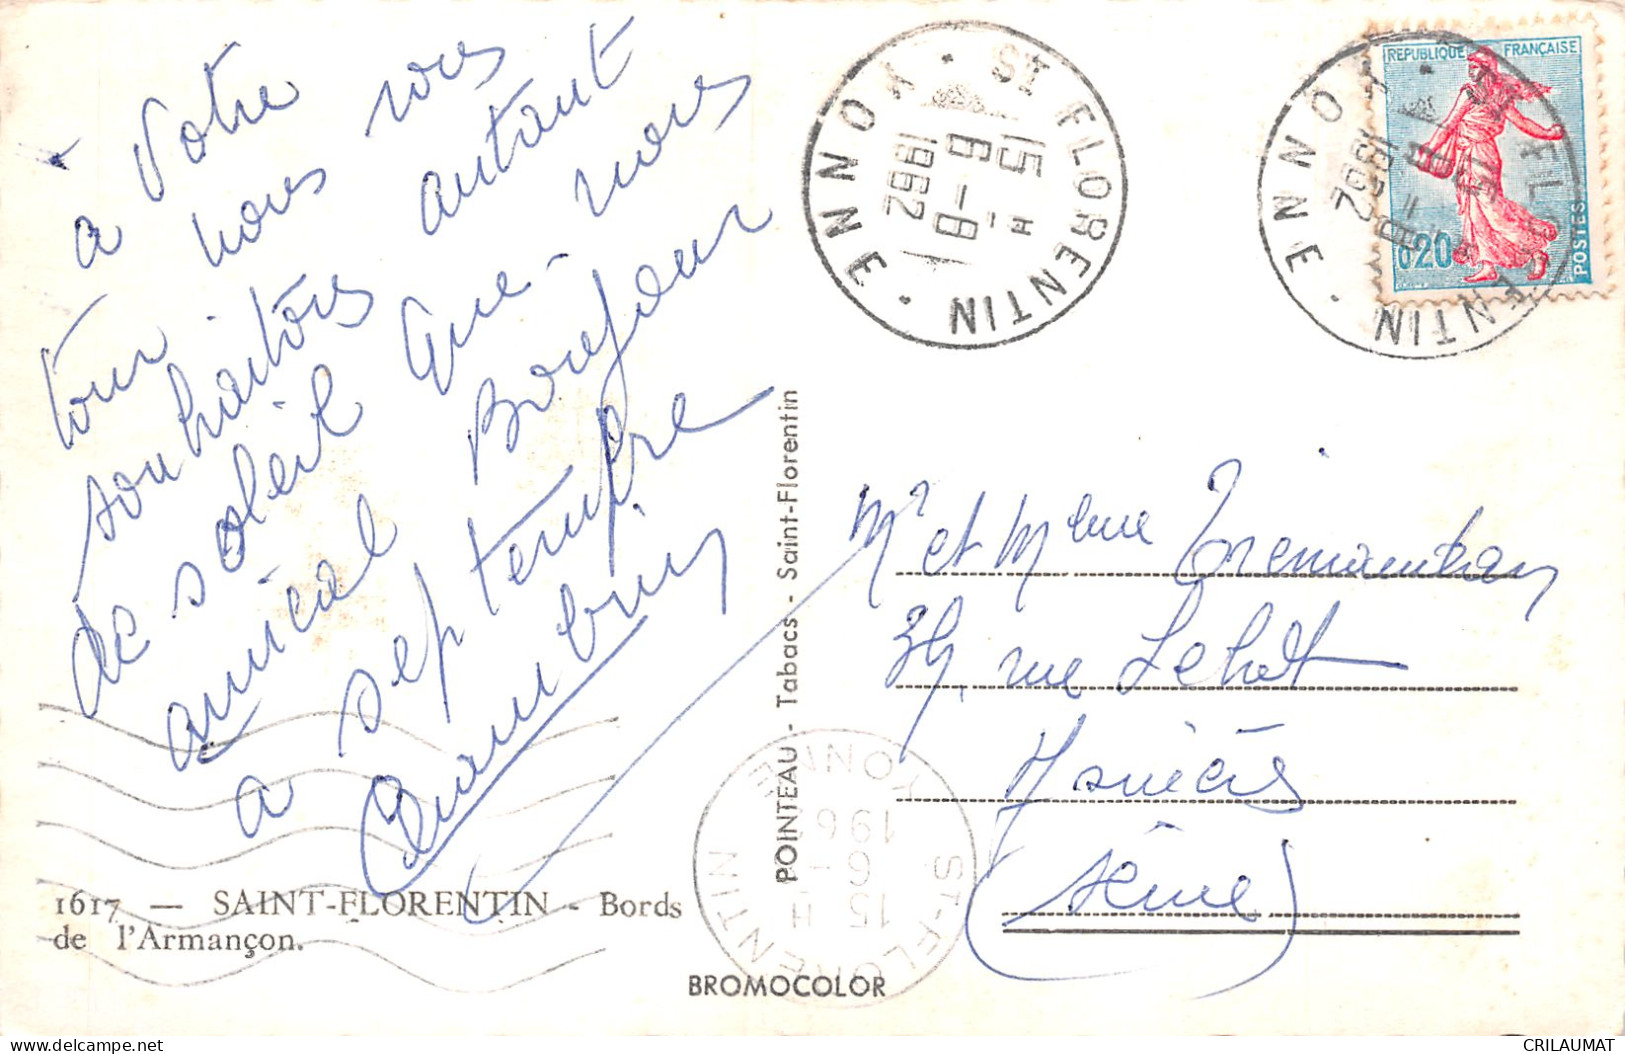 à Votre
tour nous vous
souhaitons autant
de soleil que nous
amical Bonjour
a septembre
ST FLORENTIN
YONNE
15 H
6 - 8
1962
REPUBLIQUE FRANÇAISE
0,20
POSTES
ST FLORENTIN
YONNE
1962
Mr et Mme
39, rue
Asnières
(Seine)
POINTEAU - Tabacs - Saint-Florentin
ST-FLORENTIN
YONNE
15 H
6 -
196
1617 — SAINT-FLORENTIN - Bords
de l'Armançon.
BROMOCOLOR
CRILAUMAT